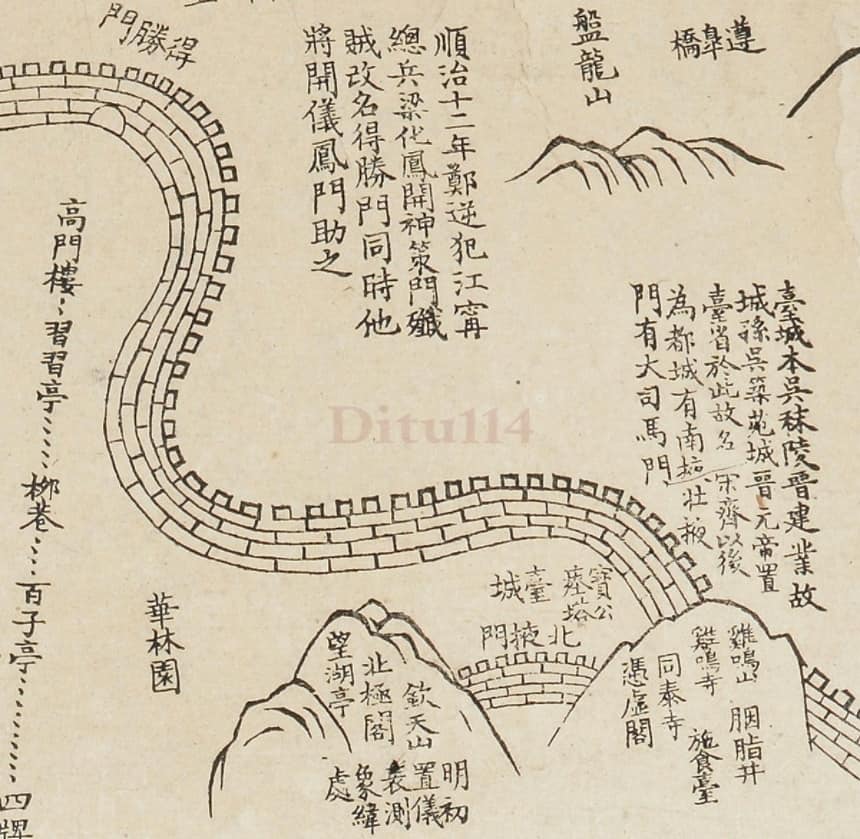 遵皐橋
盤龍山
順治十二年鄭逆犯江甯
總兵梁化鳳開神策門殲
賊改名得勝門同時他
將開儀鳳門助之
得勝門
臺城本吳秣陵晉建業故
城孫吳築苑城晉元帝置
臺省於此故名 宋齊以後
為都城有南掖
門有大司馬門
寶公
塔
臺城
北掖門
雞鳴山 胭脂井
雞鳴寺 施食臺
同泰寺
憑虛閣
欽天山
北極閣
望湖亭
明初
置儀
表測
象緯
處
華林園
高門樓 習習亭 柳巷 百子亭 四牌
Ditu114